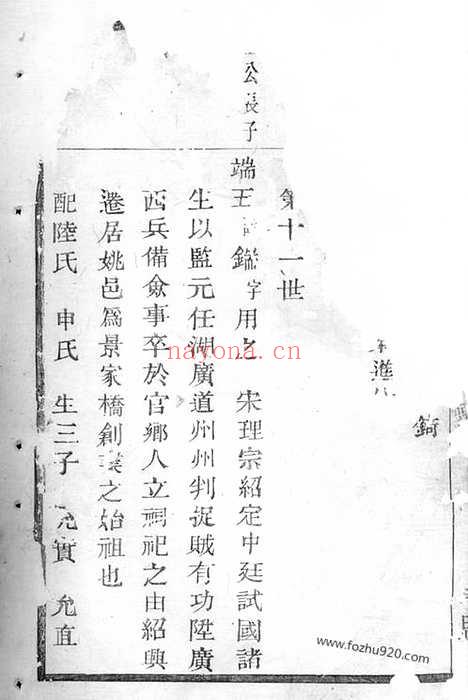 錡
進
第十一世
公長子
端五 鑑字用之 宋理宗紹定中廷試國諸
生以監元任湖廣道州州判捉賊有功陞廣
西兵備僉事卒於官鄉人立祠祀之由紹興
遷居姚邑爲景家橋創業之始祖也
配陸氏 申氏 生三子 允實 允直
nayona.cn
www.fozhu920.com